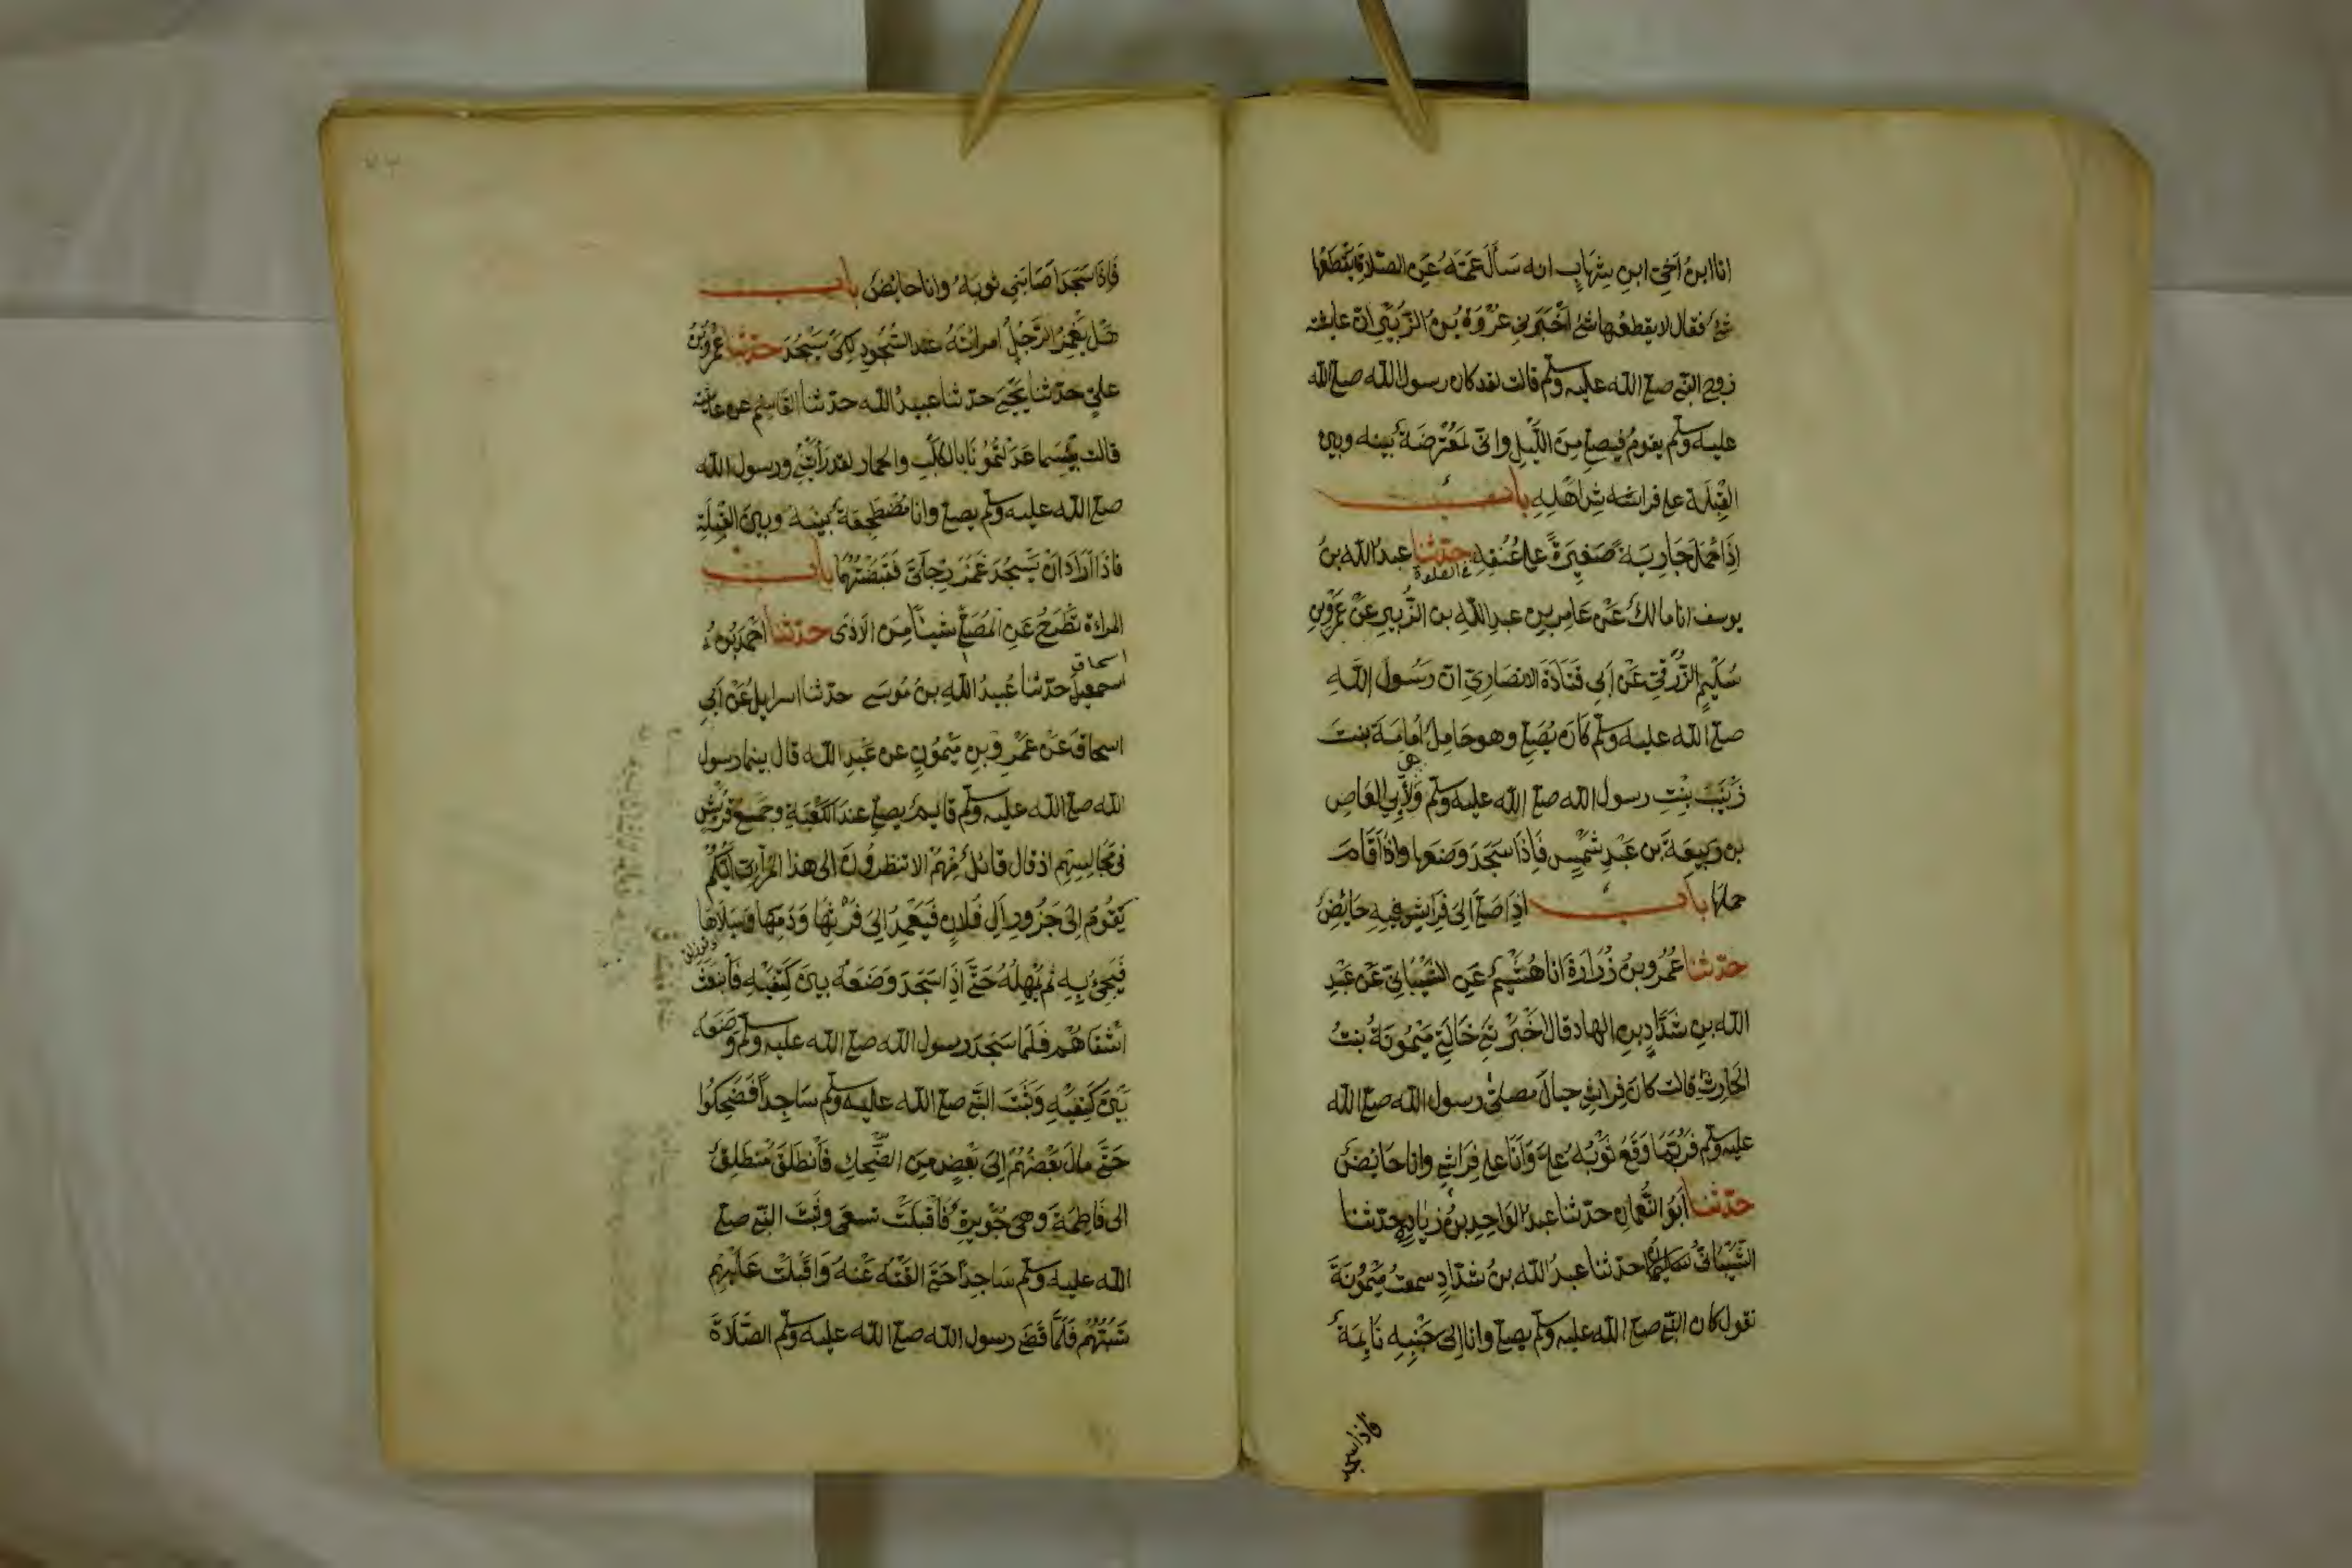 انا ابنُ اَخِي ابنِ شِهَابٍ انه سَأَلَ عَمَّهُ عَنِ الصَّلاةِ يَقْطَعُهَا
شئ فقال لا يقطعُها شئ اَخْبَرَني عُرْوَةُ بْنُ الزُّبَيْرِ انّ عايشة
زوج النبي صلى الله عليه وسلم قالت لقد كان رسول الله صلى الله
عليه وسلم يقومُ فيصلي مِنَ اللَّيْلِ وانّي لَمُعْتَرِضَةٌ بينه وبين
القِبْلَةِ على فراشه اَهْلِهِ باب
اِذَا حَمَلَ جَارِيَةً صَغِيرَةً على عُنُقِهِ حدّثنا عبدُ الله بنُ
في الصلوة
يوسف انا مالكٌ عَنْ عَامِرِ بنِ عبدِ اللهِ بن الزُّبيرِ عَنْ عَمْرِو بنِ
سُلَيْمٍ الزُّرَقِيِّ عَنْ اَبِي قَتَادَةَ الانصَارِيِّ انّ رَسُولَ اللَّهِ
صلى الله عليه وسلم كَانَ يُصَلِّي وهو حَامِلٌ اُمَامَةَ بنتَ
زَيْنَبَ بِنْتِ رسول الله صلى الله عليه وسلم وَلِأَبِي العَاصِ
بن رَبِيعَةَ بن عَبْدِ شَمْسٍ فَاِذَا سَجَدَ وَضَعَهَا وَاِذَا قَامَ
حملها باب اذَا صَلَّى اِلَى فِرَاشٍ فِيهِ حَايِضٌ
حدّثنا عَمْرُو بنُ زُرَارَةَ انا هُشَيْمٌ عَنِ الشَّيْبَانِيِّ عَنْ عَبْدِ
الله بنِ شَدَّادِ بنِ الهاد قال اَخْبَرَتْنِي خَالَتِي مَيْمُونَةُ بنتُ
الحَارِثِ قالت كَانَ فِرَاشِي حِيَالَ مصلّى رسول الله صلى الله
عليه وسلم فَرُبَّمَا وَقَعَ ثَوْبُهُ عَلَيَّ وَاَنَا على فِرَاشِي وانا حَايِضٌ
حدّثنا اَبُو النُّعمانِ حدّثنا عبدُ الوَاحِدِ بنُ زِيَادٍ حدّثنا
الشَّيْبَانيُّ سليمان حدثنا عبدُ الله بنُ شدّادٍ سمعتُ مَيْمُونَةَ
تقول كان النبي صلى الله عليه وسلم يصلي وانا اِلى جَنْبِهِ نَايِمَةٌ
فاذا سجد
فَاِذَا سَجَدَ اَصَابَنِي ثوبُهُ وانا حايضٌ باب
هَلْ يَغْمِزُ الرَّجُلُ امراتَهُ عند السُّجُودِ لِكَيْ يَسْجُدَ حدّثنا عَمْرُو بنُ
عليّ حدّثنا يَحْيَى حدّثنا عبيدُ الله حدّثنا القَاسِمُ عن عايشة
قالت بِئْسَمَا عَدَلْتُمُونَا بالكَلْبِ والحمار لقد رَاَيْتُنِي ورسول الله
صلى الله عليه وسلم يصلي وانا مُضْطَجِعَةٌ بينه وبين القِبْلَةِ
فاذَا اَرَادَ اَنْ يَسْجُدَ غَمَزَ رِجْلَيَّ فَقَبَضْتُهُمَا باب
المراةِ تَطْرَحُ عَنِ المُصَلِّي شيئاً مِنَ الاَذَى حدّثنا اَحْمَدُ بْنُ
اسحاق
اسمعيل حدّثنا عُبيدُ اللهِ بنُ مُوسَى حدّثنا اسرايل عَنْ اَبِي
اسحاقَ عَنْ عَمْرِو بنِ مَيْمُونٍ عن عَبْدِ الله قال بينما رسول
الله صلى الله عليه وسلم قايمٌ يصلي عندَ الكَعْبَةِ وجَمْعُ قُرَيْشٍ
في مَجَالِسِهِم اذ قال قائلٌ مِنْهُمْ الا تنظُرُونَ الى هذا المُرَائي اَيُّكُمْ
يَقُومُ اِلَى جَزُورِ آلِ فُلَانٍ فَيَعْمِدُ اِلَى فَرْثِهَا وَدَمِهَا وَسَلَاهَا
فَيَجِئُ بِهِ ثُمَّ يُمْهِلُهُ حَتَّى اِذَا سَجَدَ وَضَعَهُ بينَ كَتِفَيْهِ فَانْبَعَثَ
اَشْقَاهُمْ فَلَمَّا سَجَدَ رسول الله صلى الله عليه وسلم وَضَعَهُ
بَيْنَ كَتِفَيْهِ وَثَبَتَ النبي صلى الله عليه وسلم سَاجِداً فَضَحِكُوا
حَتَّى مالَ بَعْضُهُمْ اِلَى بَعْضٍ مِنَ الضَّحِكِ فَانْطَلَقَ مُنْطَلِقٌ
الى فَاطِمَةَ وهي جُوَيْرِيَةٌ فَاَقْبَلَتْ تَسْعَى وثَبَتَ النبي صلى
الله عليه وسلم سَاجِداً حَتَّى القَتْهُ عَنْهُ وَاَقْبَلَتْ عَلَيْهِمْ
تَسُبُّهُمْ فَلَمَّا قَضَى رسول الله صلى الله عليه وسلم الصَّلَاةَ